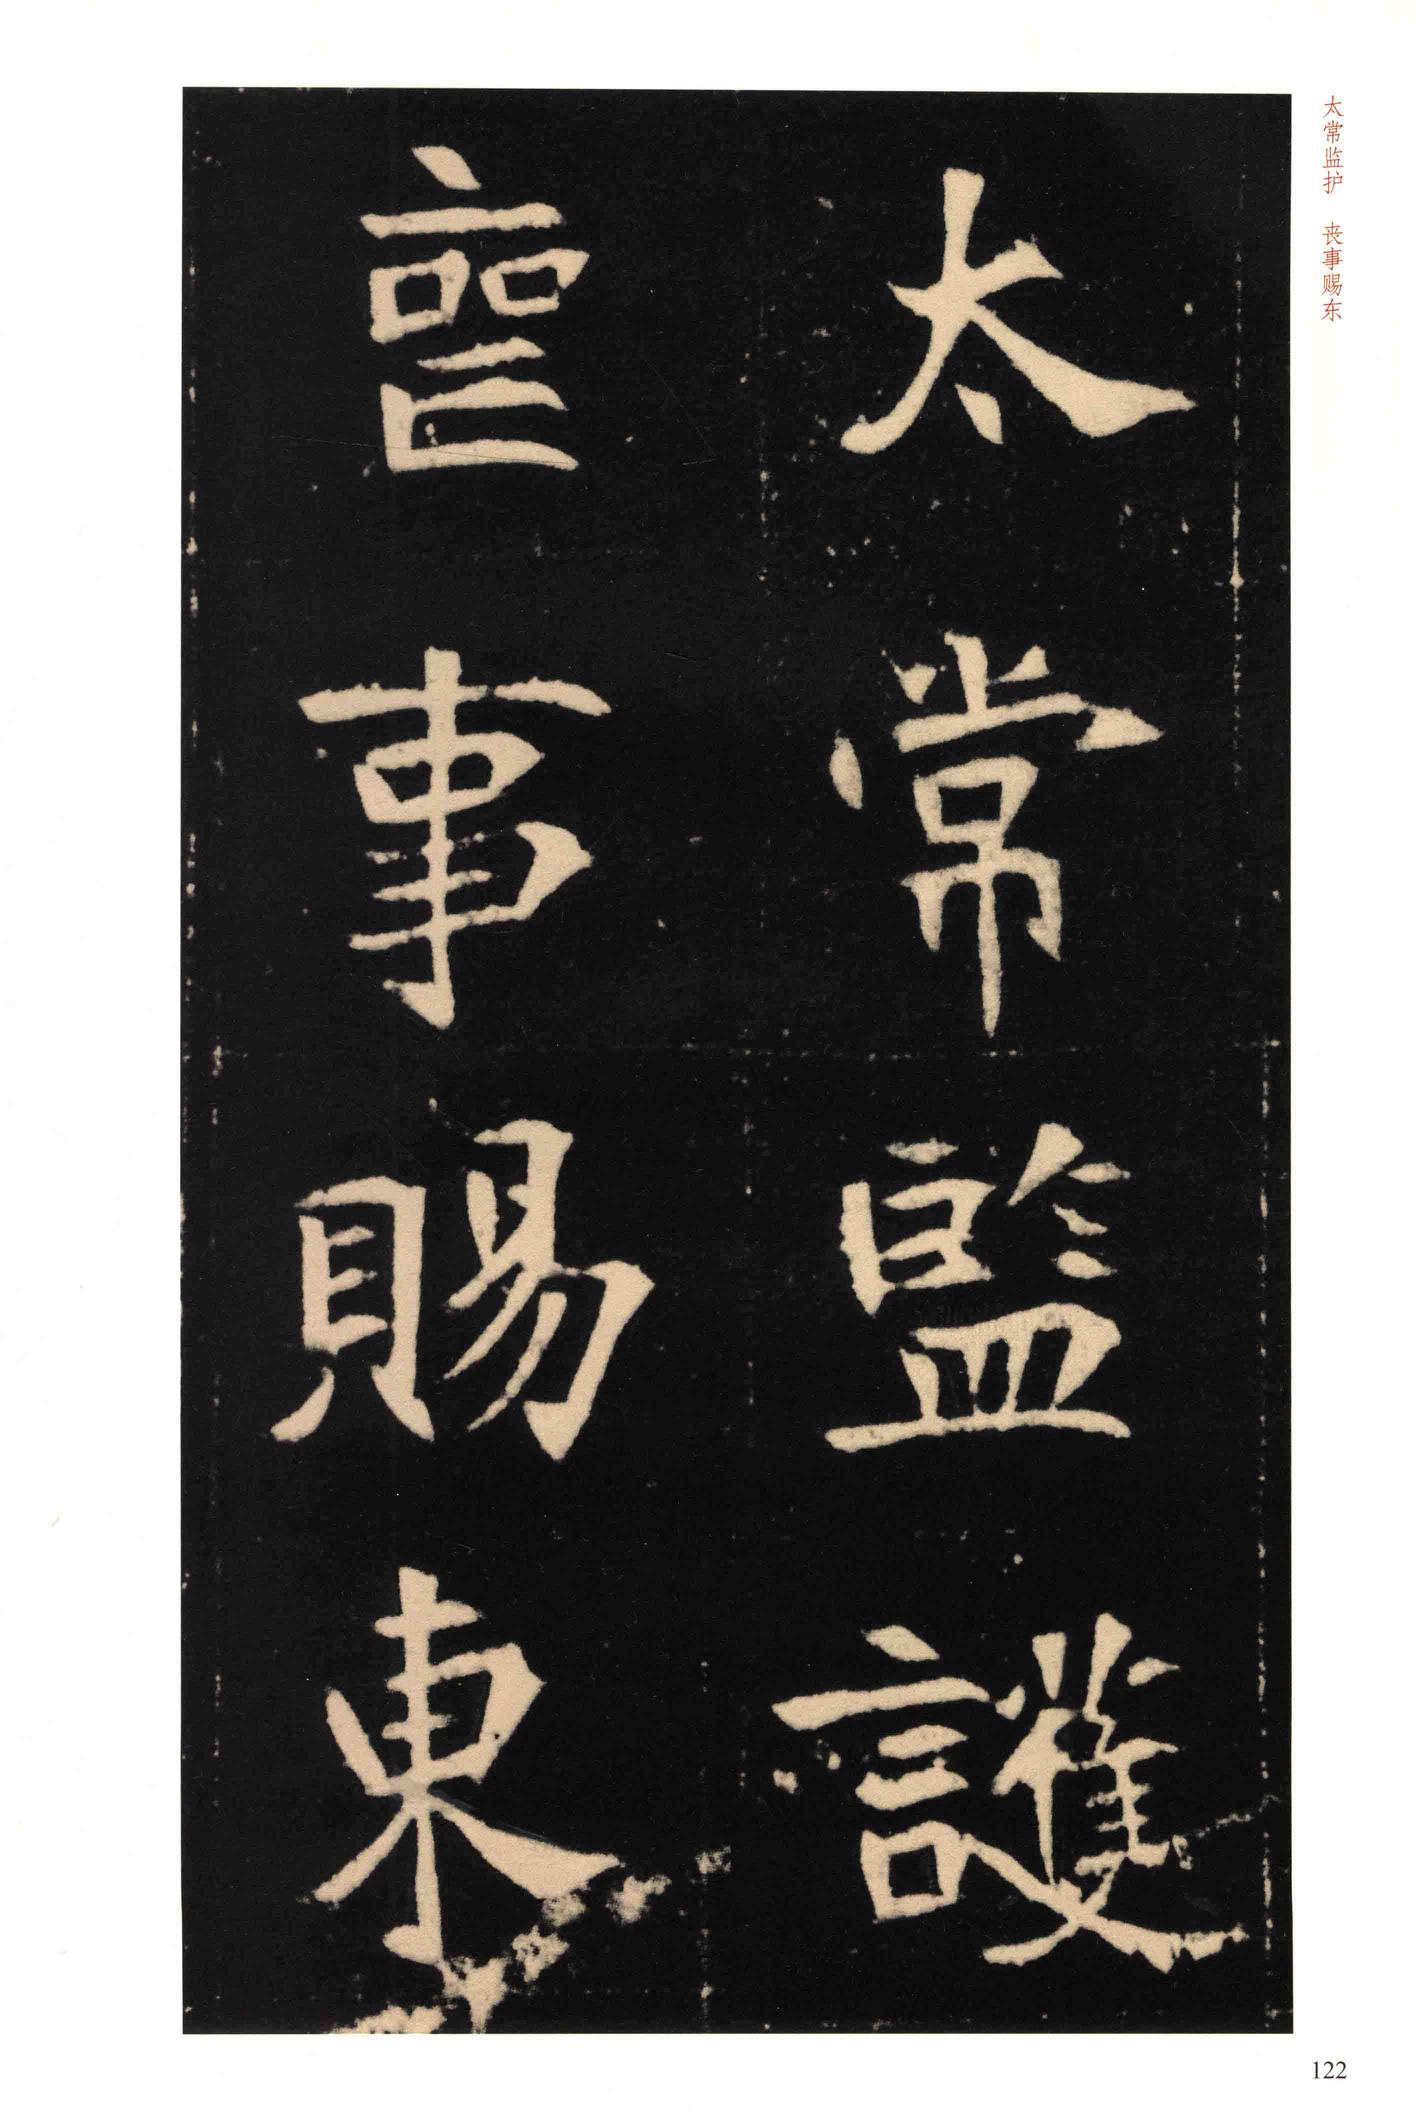 太常监护 丧事赐东
太常監護
䘮事賜東
122